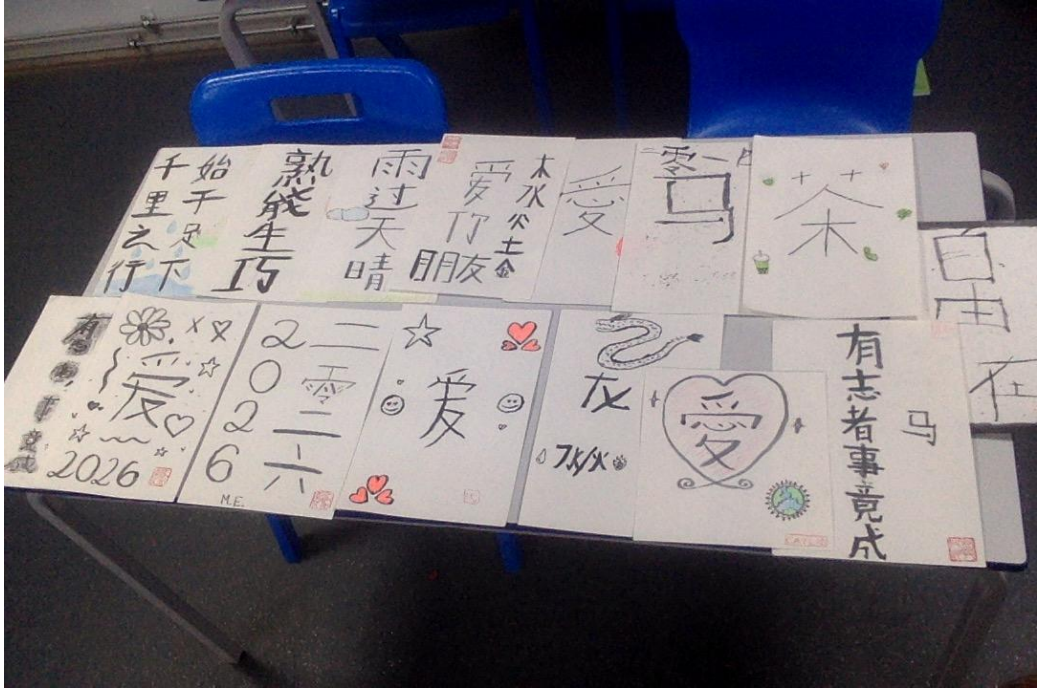 千里之行
始于足下
熟能生巧
雨过天晴
爱你
朋友
木水火土金
愛
零一
马
茶
自由
在
有
事竟成
爱
2026
2026
二零二六
M.E.
爱
灰
水/火
愛
有志者事竟成
马